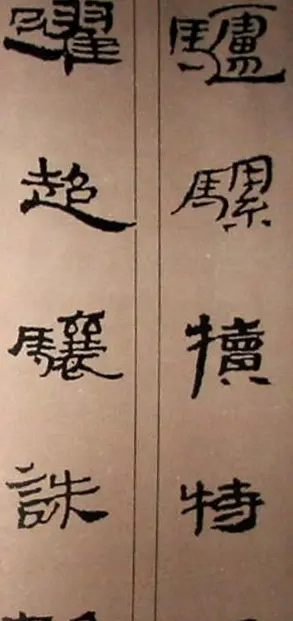 驢騾犢特
躍超驤誅